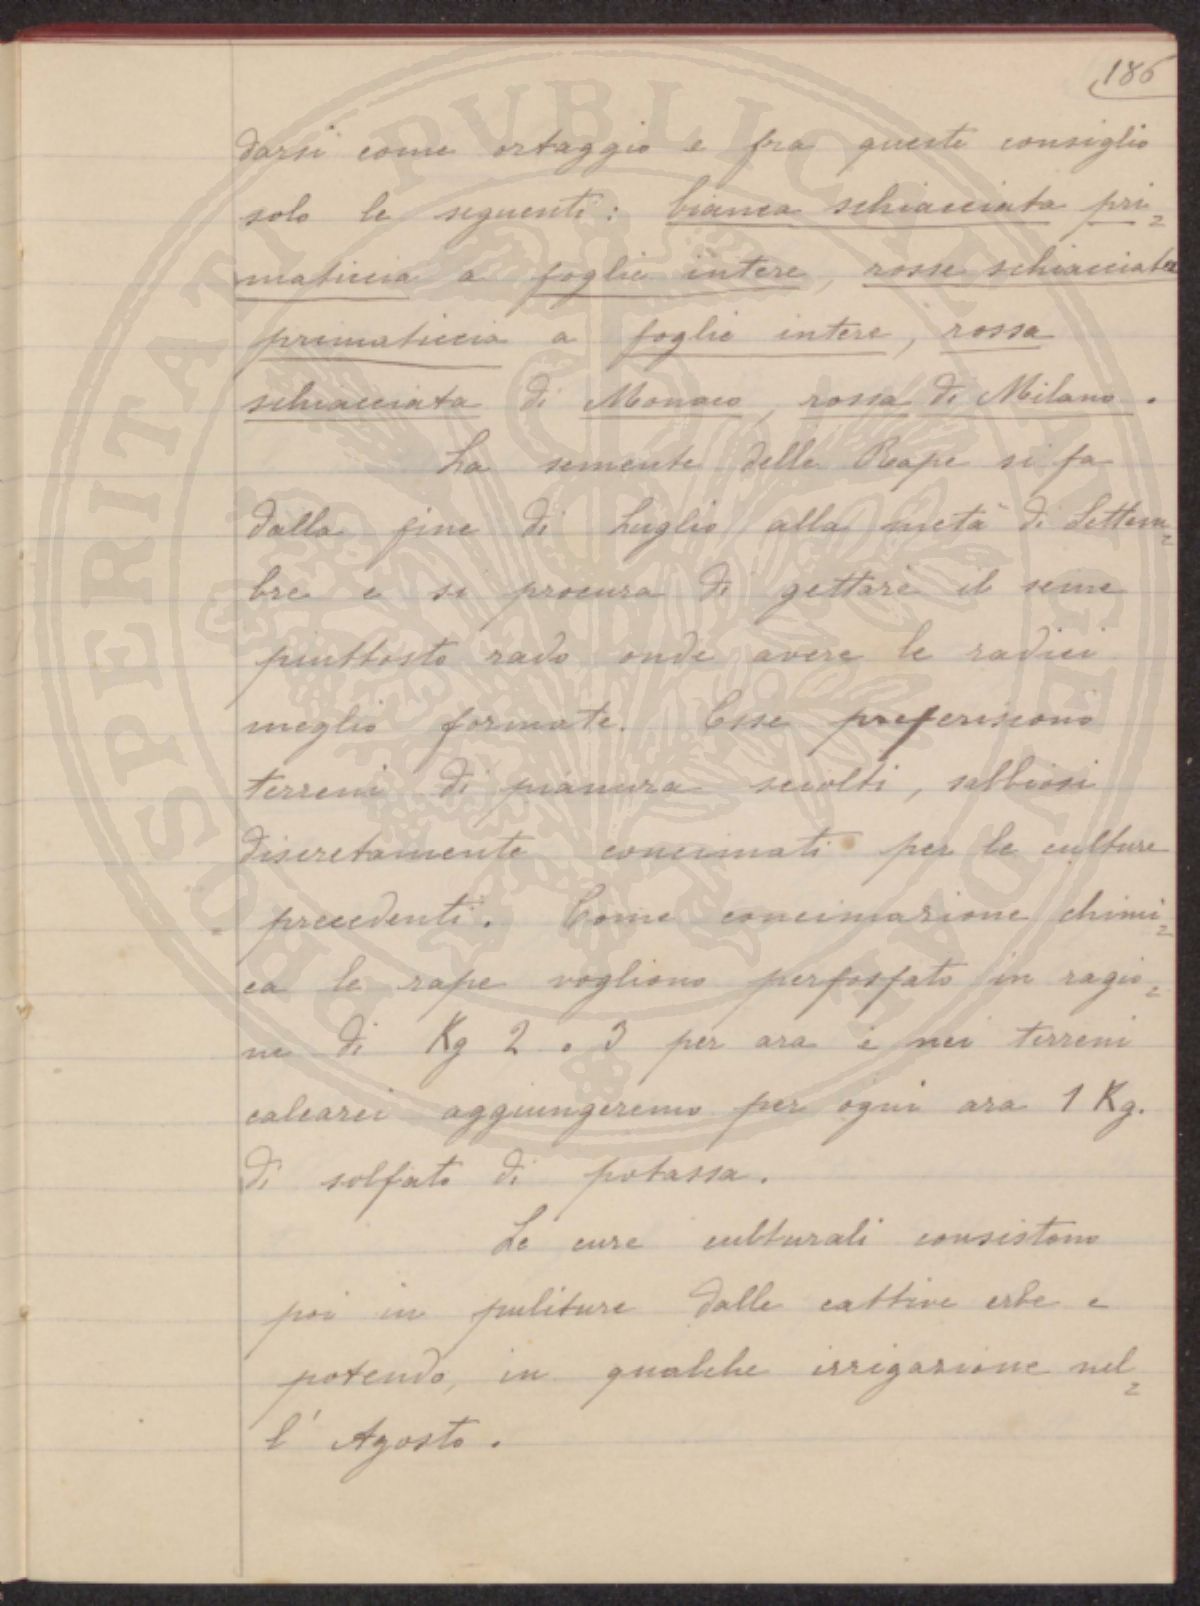 186
darsi come ortaggio e fra queste consiglio
solo le seguenti: bianca schiacciata pri=
maticcia a foglie intere, rossa schiacciata
primaticcia a foglie intere, rossa
schiacciata di Monaco, rossa di Milano.
La semente delle Rape si fa
dalla fine di Luglio alla metà di Settem=
bre e si procura di gettare il seme
piuttosto rado onde avere le radici
meglio formate. Esse preferiscono
terreni di pianura sciolti, sabbiosi
discretamente concimati per le culture
precedenti. Come concimazione chimi=
ca le rape vogliono perfosfato in ragio=
ne di Kg 2 o 3 per ara e nei terreni
calcarei aggiungeremo per ogni ara 1 Kg.
di solfato di potassa.
Le cure culturali consistono
poi in puliture dalle cattive erbe e
potendo, in qualche irrigazione nel=
l'Agosto.
PROSPERITATI PUBLICAE AUGENDAE